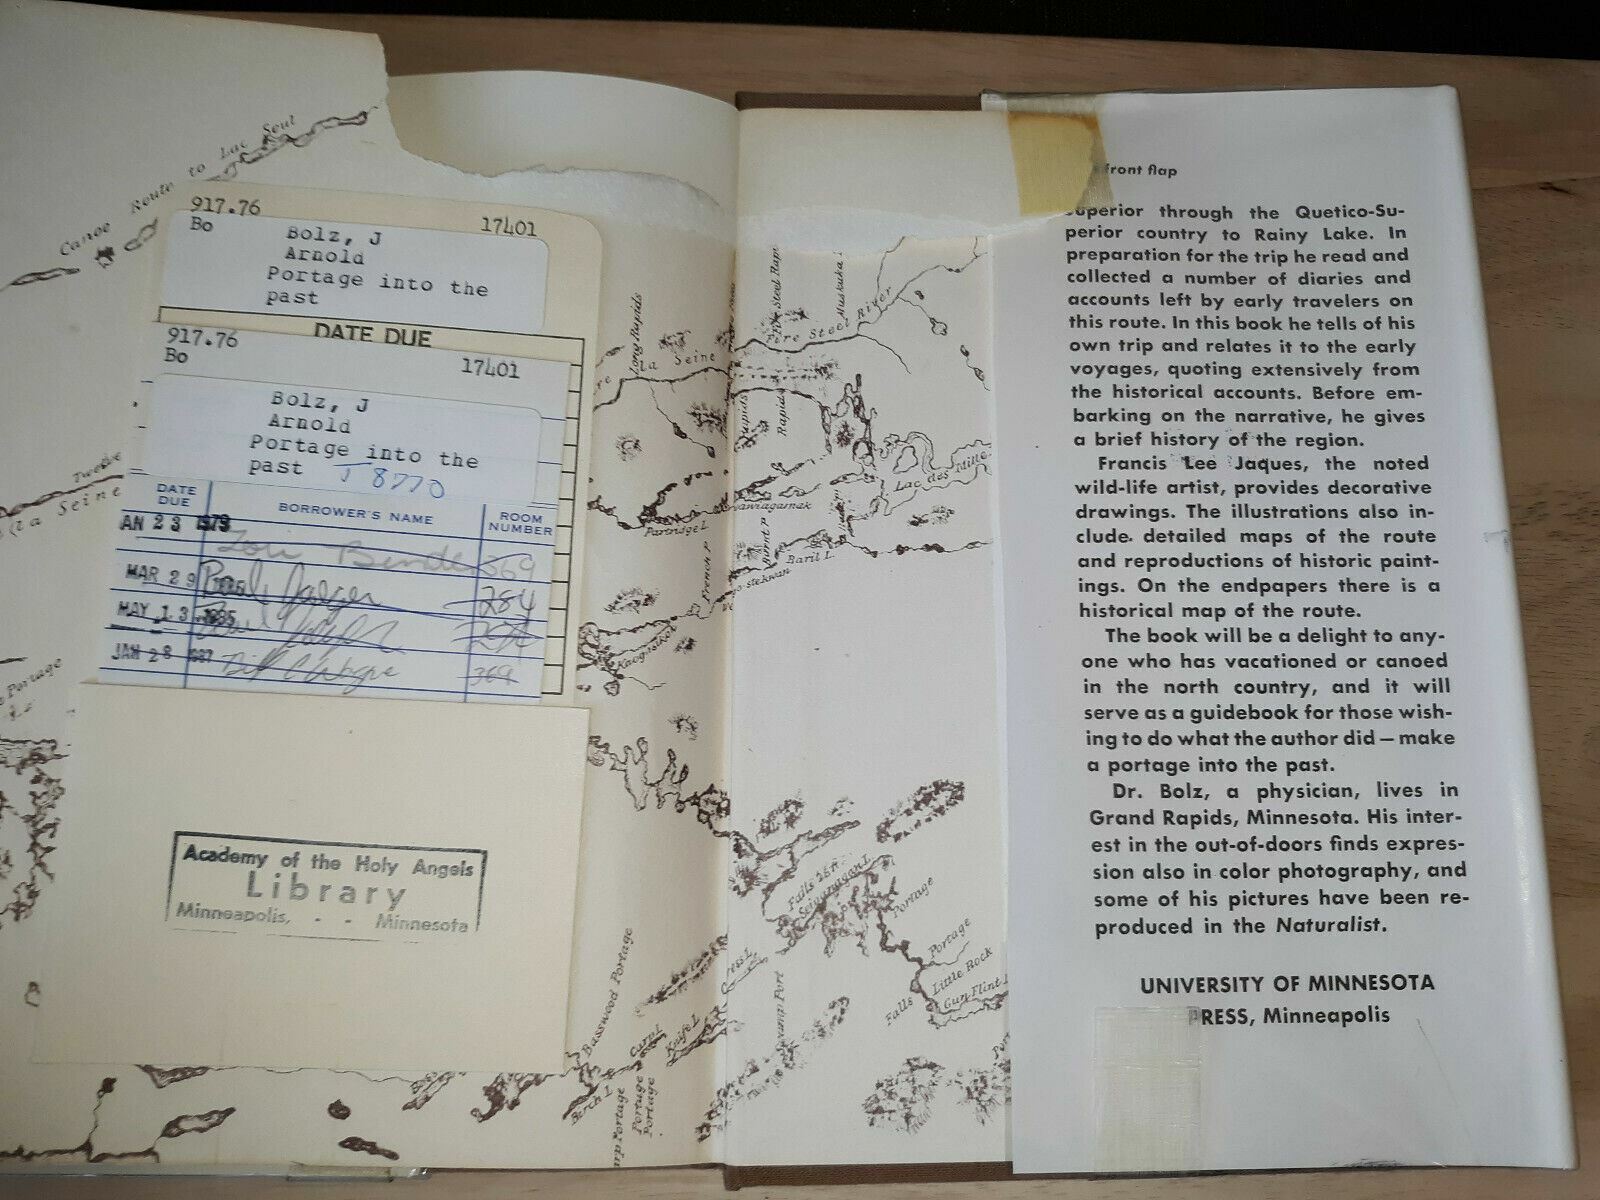 Canoe Route to Lac Seul
917.76
Bo
17401
Bolz, J
Arnold
Portage into the
past
DATE DUE
917.76
Bo
17401
Bolz, J
Arnold
Portage into the
past T 8770
DATE
DUE
BORROWER'S NAME
ROOM
NUMBER
AN 23 1979
Lori 369
MAR 29
284
MAY 13 1985
JAN 28 1987 Bill 369
Academy of the Holy Angels
Library
Minneapolis, - - Minnesota
Twelve
la Seine
Portage
Long Rapids
la Seine
Steel River
Rapids
Lac des Mille
Partridge I.
French P.
Burnt P
Baril L.
Kaogassikok
Falls
Portage
Portage
Little Rock
Falls
Gun Flint
Basswood Portage
Carp L
Knife L
Birch L
Portage
Portage
Portage
front flap
Superior through the Quetico-Su-
perior country to Rainy Lake. In
preparation for the trip he read and
collected a number of diaries and
accounts left by early travelers on
this route. In this book he tells of his
own trip and relates it to the early
voyages, quoting extensively from
the historical accounts. Before em-
barking on the narrative, he gives
a brief history of the region.
Francis Lee Jaques, the noted
wild-life artist, provides decorative
drawings. The illustrations also in-
clude detailed maps of the route
and reproductions of historic paint-
ings. On the endpapers there is a
historical map of the route.
The book will be a delight to any-
one who has vacationed or canoed
in the north country, and it will
serve as a guidebook for those wish-
ing to do what the author did — make
a portage into the past.
Dr. Bolz, a physician, lives in
Grand Rapids, Minnesota. His inter-
est in the out-of-doors finds expres-
sion also in color photography, and
some of his pictures have been re-
produced in the Naturalist.
UNIVERSITY OF MINNESOTA
PRESS, Minneapolis